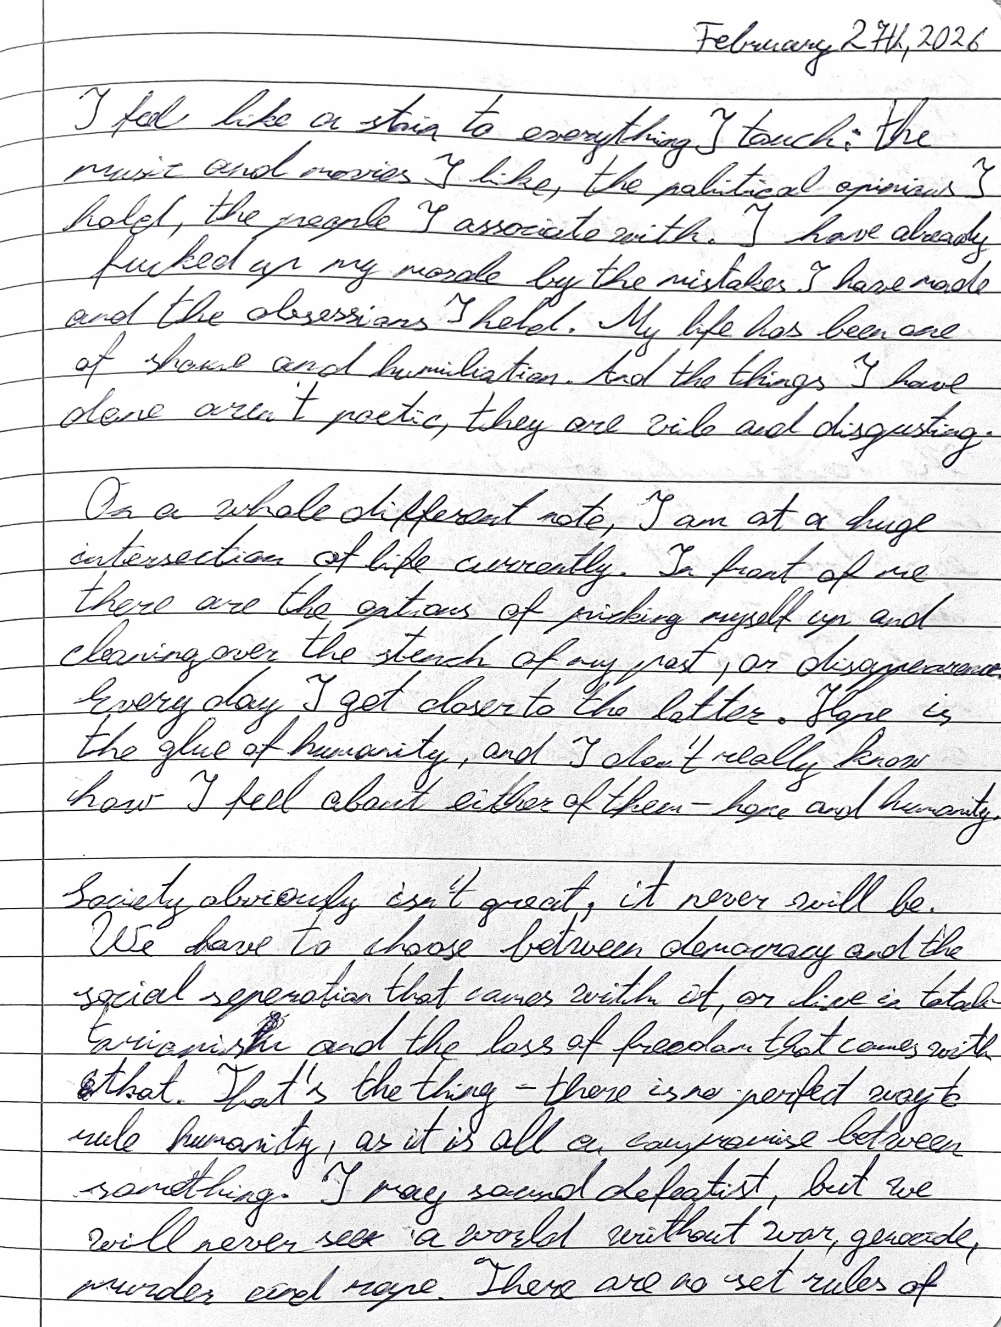 February 27th, 2026
I feel like a stain to everything I touch: the
music and movies I like, the political opinions I
hold, the people I associate with. I have already
fucked up my morale by the mistakes I have made
and the obsessions I held. My life has been one
of shame and humiliation. And the things I have
done aren't poetic, they are vile and disgusting.
On a whole different note, I am at a huge
intersection of life currently. In front of me
there are the options of picking myself up and
cleaning over the stench of my past, or disappearance.
Every day I get closer to the latter. Hope is
the glue of humanity, and I don't really know
how I feel about either of them - hope and humanity.
Society obviously isn't great, it never will be.
We have to choose between democracy and the
social seperation that comes with it, or live in totali-
tarianism and the loss of freedom that comes with
that. That's the thing - there is no perfect way to
rule humanity, as it is all a compromise between
something. I may sound defeatist, but we
will never see a world without war, genocide,
murder and rape. There are no set rules of